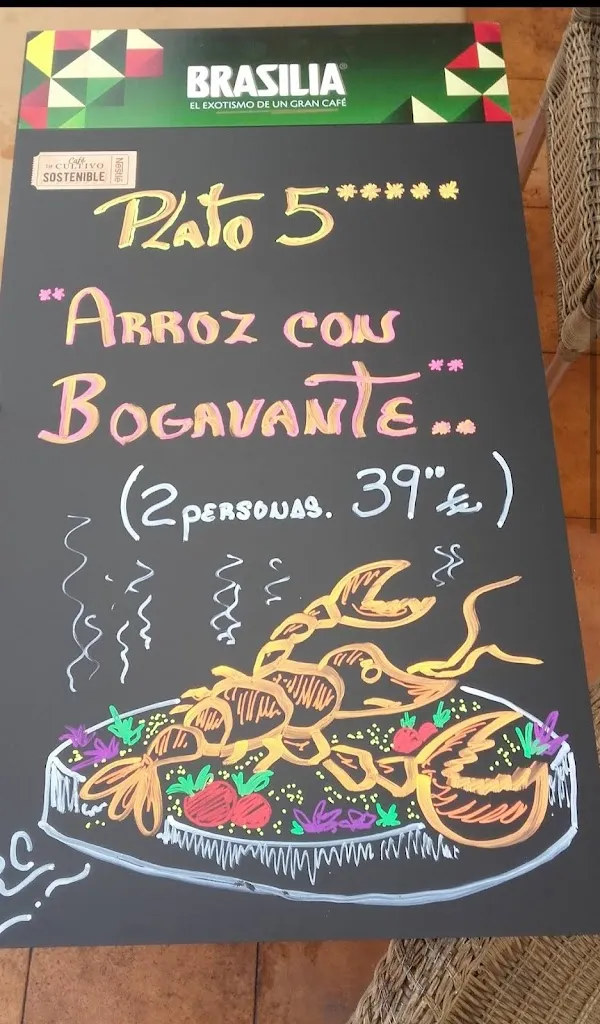 BRASILIA®
EL EXOTISMO DE UN GRAN CAFÉ
Café
CULTIVO
SOSTENIBLE
Nestlé
Plato 5*****
**ARROZ CON
BOGAVANTE**
(2 PERSONAS. 39"